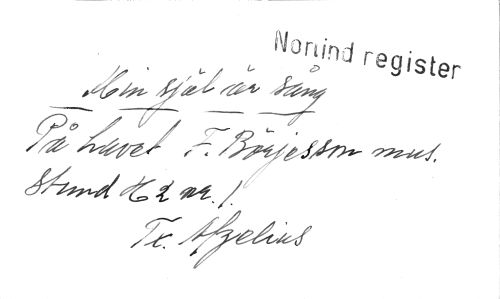 Nonind register
Min själ är sång
På havet F. Börjesson mus.
Stund H 2 nr. 1.
Tx. Afzelius